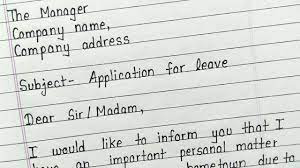 The Manager
Company name,
Company address
Subject- Application for leave
Dear Sir/Madam,
I would like to inform you that I
have an important personal matter
hometown due to